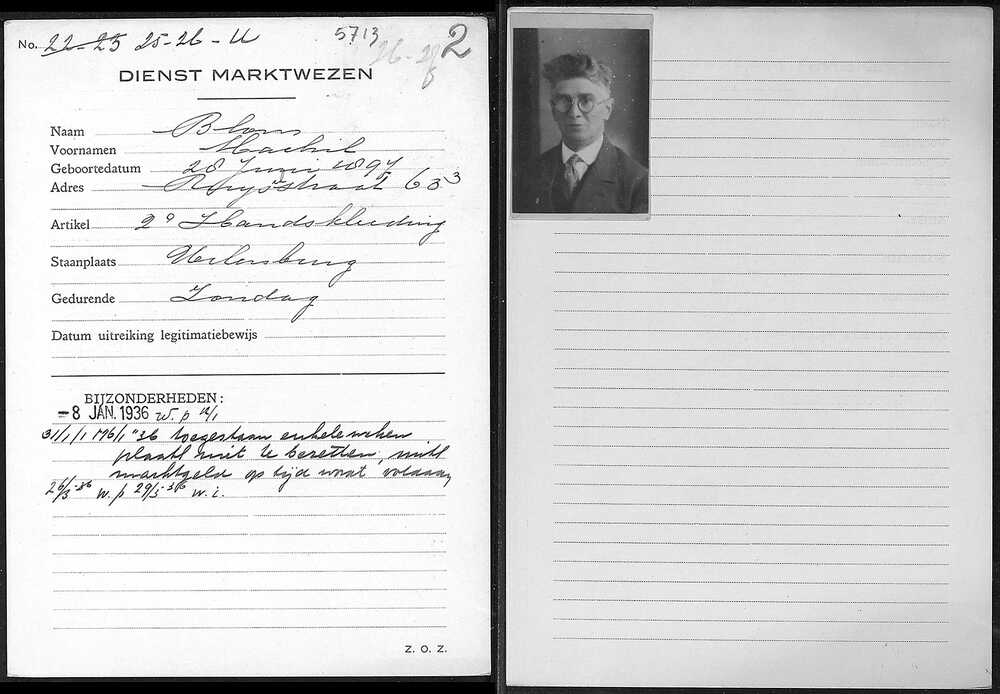 No. 22-23 25-26-U 5713 26-27 2
DIENST MARKTWEZEN
Naam Blom
Voornamen Machiel
Geboortedatum 28 Juni 1897
Adres Ruyschstraat 63 3
Artikel 2e Handskleeding
Staanplaats Uilenburg
Gedurende Zondag
Datum uitreiking legitimatiebewijs
BIJZONDERHEDEN:
-8 JAN. 1936 W. p 12/1
31/1/1 M6/1 '36 toegestaan enkele weken
plaats niet te bezetten, mits
marktgeld op tijd wordt voldaan
26/3-36 w. p 29/3-36 w. i.
Z. O. Z.